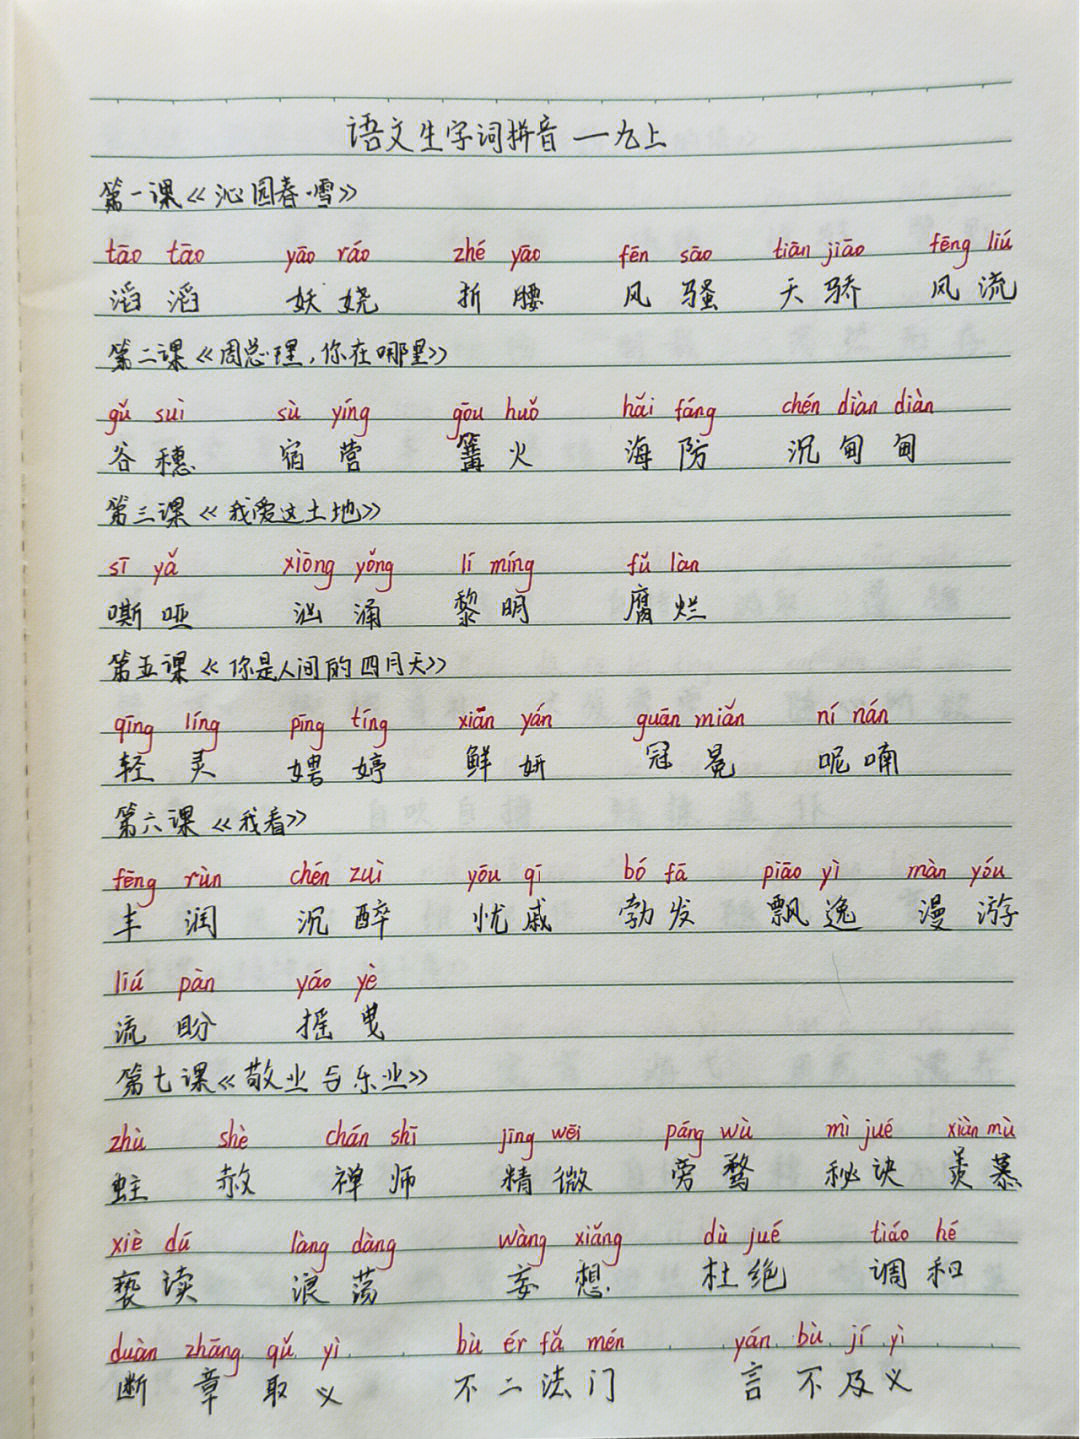 语文生字词拼音一九上
第一课《沁园春·雪》
tāo tāo yāo ráo zhé yāo fēn sāo tiān jiāo fēng liú
滔滔 妖娆 折腰 风骚 天骄 风流
第二课《周总理,你在哪里》
gǔ suì sù yíng gōu huǒ hǎi fáng chén diàn diàn
谷穗 宿营 篝火 海防 沉甸甸
第三课《我爱这土地》
sī yǎ xiōng yǒng lí míng fǔ làn
嘶哑 汹涌 黎明 腐烂
第五课《你是人间的四月天》
qīng líng pīng tíng xiān yán guān miǎn ní nán
轻灵 娉婷 鲜妍 冠冕 呢喃
第六课《我看》
fēng rùn chén zuì yōu qī bó fā piāo yì màn yóu
丰润 沉醉 忧戚 勃发 飘逸 漫游
liú pàn yáo yè
流盼 摇曳
第七课《敬业与乐业》
zhù shè chán shī jīng wēi páng wù mì jué xiàn mù
蛀 赦 禅师 精微 旁骛 秘诀 羡慕
xiè dú làng dàng wàng xiǎng dù jué tiáo hé
亵读 浪荡 妄想 杜绝 调和
duàn zhāng qǔ yì bù ér fǎ mén yán bù jí yì
断章取义 不二法门 言不及义